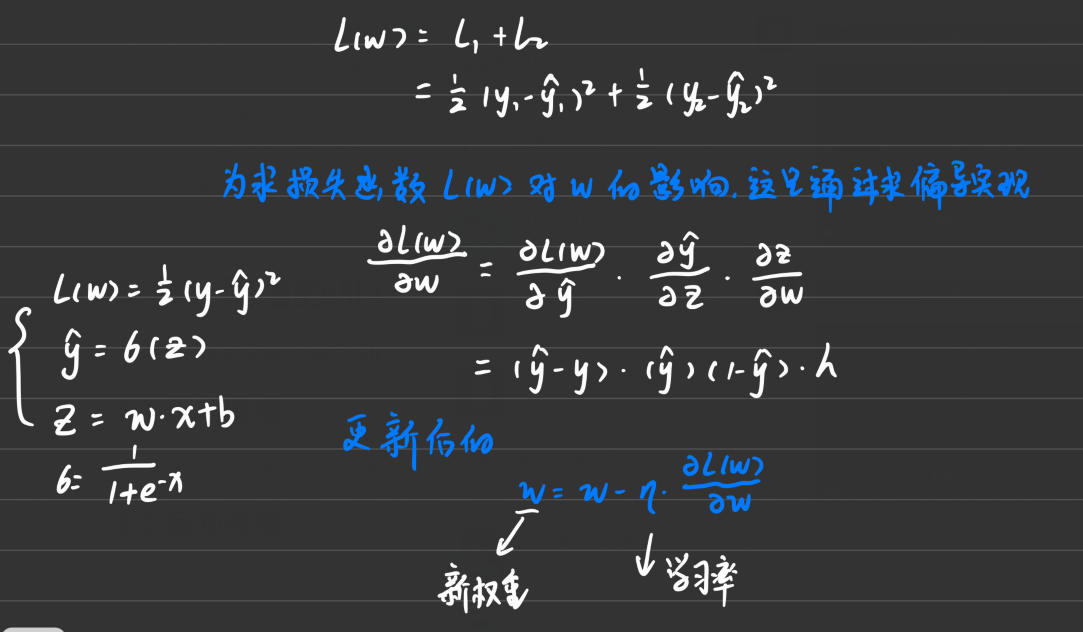 L(w) = L₁ + L₂
= ½ (y₁ - ŷ₁)² + ½ (y₂ - ŷ₂)²
为求损失函数 L(w) 对 w 的影响.这里通过求偏导实现
∂L(w)/∂w = ∂L(w)/∂ŷ · ∂ŷ/∂z · ∂z/∂w
= (ŷ-y) · (ŷ) (1-ŷ) · h
L(w) = ½ (y-ŷ)²
ŷ = 6(z)
z = w·x+b
6 = 1/(1+e^-x)
更新后的
w = w - η · ∂L(w)/∂w
新权重
学习率